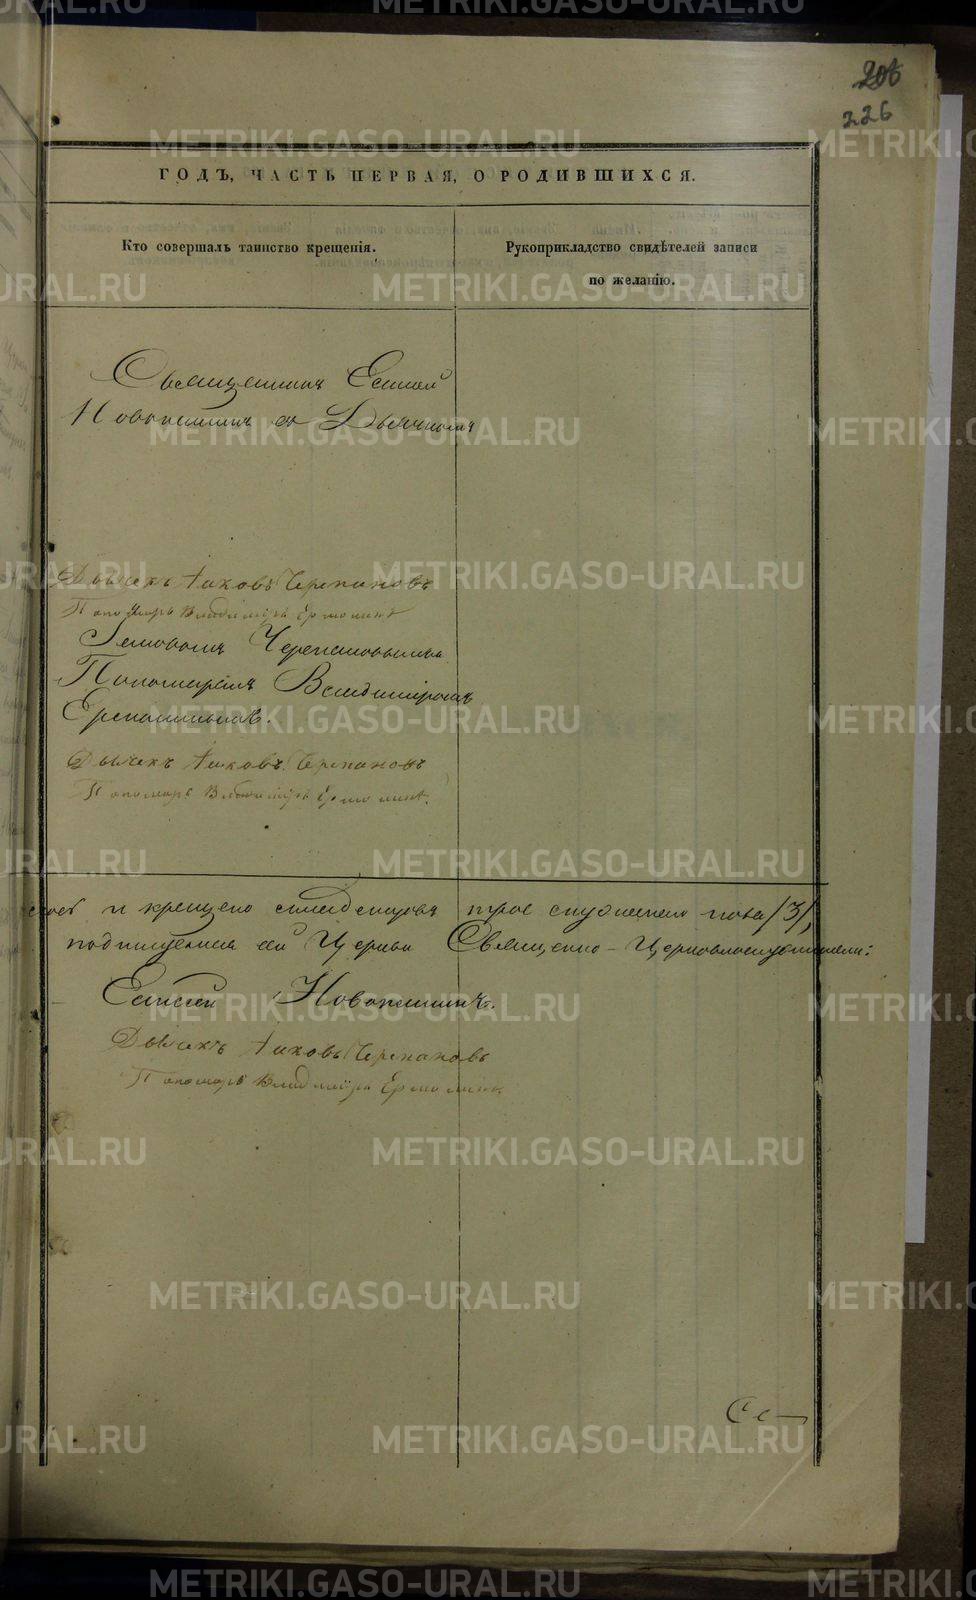 206
226
ГОДЪ, ЧАСТЬ ПЕРВАЯ, О РОДИВШИХСЯ.
Кто совершалъ таинство крещенія.
Рукоприкладство свидѣтелей записи
по желанію.
Священникъ Елисей
Новопашинъ съ Дьячкомъ
Дьячекъ Іаковъ Черепановъ
Пономарь Владиміръ Ермолинъ
Іаковомъ Черепановымъ
Пономаремъ Владиміромъ
Ермолинымъ.
Дьячекъ Іаковъ Черепановъ
Пономарь Владиміръ Ермолинъ.
и крещено младенцевъ пола /3/,
подписались сей Церкви Священно-Церковнослужители:
Елисей Новопашинъ.
Дьячекъ Іаковъ Черепановъ
Пономарь Владиміръ Ермолинъ.
METRIKI.GASO-URAL.RU